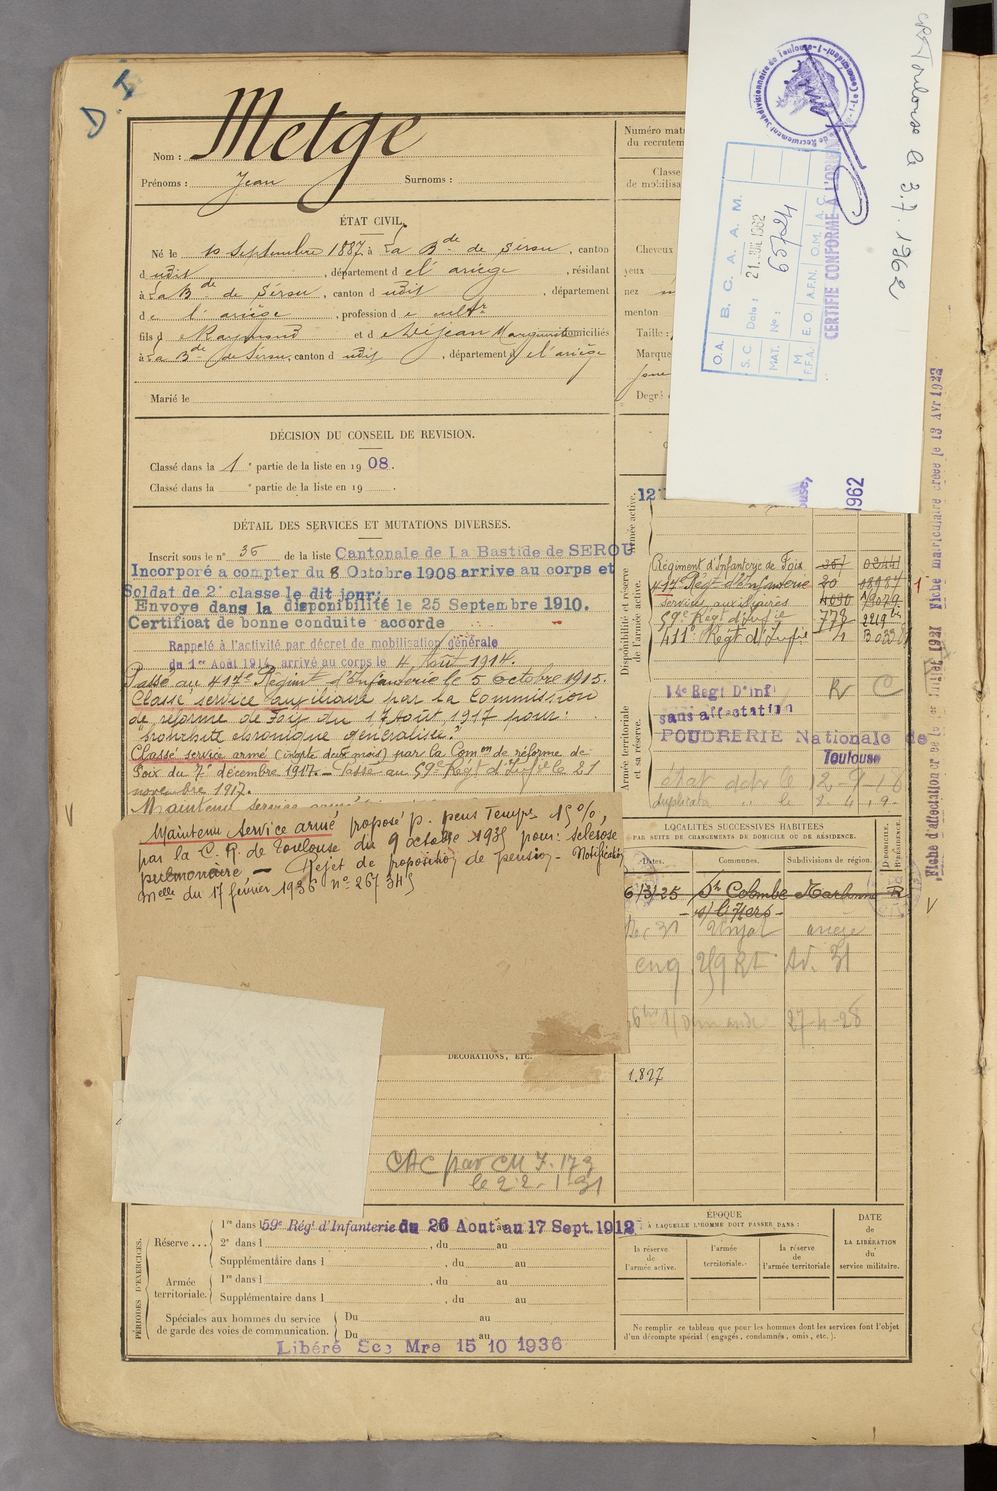 D. I
Metge
Nom :
Prénoms : Jean Surnoms :
ÉTAT CIVIL.
Né le 10 Septembre 1887, à La Bde de Sérou, canton
dudit, département de l'ariège, résidant
à La Bde de Sérou, canton dudit, département
de l'ariège, profession de
fils de Raymond et de Déjean Marguerite domiciliés
à La Bde de Sérou, canton dudit, département de l'ariège
Marié le
DÉCISION DU CONSEIL DE REVISION.
Classé dans la 1e partie de la liste en 1908.
Classé dans la e partie de la liste en 19 .
DÉTAIL DES SERVICES ET MUTATIONS DIVERSES.
Inscrit sous le n° 36 de la liste Cantonale de La Bastide de SEROU
Incorporé a compter du 8 Octobre 1908 arrive au corps et
Soldat de 2e classe le dit jour;
Envoye dans la disponibilité le 25 Septembre 1910.
Certificat de bonne conduite accorde
Rappelé à l'activité par décret de mobilisation générale
du 1er Août 1914, arrivé au corps le 4 Août 1914.
Passé au 417e Régiment d'Infanterie le 5 octobre 1915.
Classé service auxiliaire par la Commission
de réforme de Foix du 17 Août 1917 pour:
"bronchite chronique généralisée."
Classé service armé (inapte deux mois) par la Comon de réforme de
Foix du 7 décembre 1917. - Passé au 59e Régt d'Infie le 21
novembre 1917.
Maintenu service armé
Maintenu service armé proposé p. pens Tempre 15 %,
par la C. R. de Toulouse du 9 octobre 1935 pour: sclérose
pulmonaire, — Rejet de proposition de pension - Notification
melle du 17 février 1936 n° 26734S
DÉCORATIONS, ETC.
CAC par CM 7.173
le 22-1-31
PÉRIODES D'EXERCICES.
Réserve . . .
1re dans l 59e Régt d'Infanterie du 26 Aout au 17 Sept. 1912.
2e dans l , du au
Supplémentaire dans l , du au
Armée territoriale.
1re dans l , du au
Supplémentaire dans l , du au
Spéciales aux hommes du service
de garde des voies de communication.
Du au
Du au
Libéré Sce Mre 15 10 1936
Numéro mat
du recrutem
Classe
de mobilisa
Cheveux
yeux
nez
menton
Taille :
Marque
Degré
Toulouse le 3.7.1962
de Recrutement Subdivisionnaire de Toulouse - Le Commandant
CERTIFIÉ CONFORME A L'ORI
O.A. B. C. A. A. M.
S. C. Date : 21 JUI 1962
MAT. N° : 65724
M E.O O.M A.C
F.F.A. A.F.N.
1962
12
Armée active.
Disponibilité et réserve
de l'armée active.
Régiment d'Infanterie de Foix
417e Régt d'Infanterie 20
services auxiliaires
59e Régt d'Infie 778
411e Régt d'Infie
Armée territoriale
et sa réserve.
14e Regt D'inf R C
sans affectation
POUDRERIE Nationale de
Toulouse
état
duplicata
LOCALITÉS SUCCESSIVES HABITÉES
PAR SUITE DE CHANGEMENTS DE DOMICILE OU DE RÉSIDENCE.
Dates. Communes. Subdivisions de région. D. DOMICILE. R. RÉSIDENCE.
6/3/25 Ste Colombe Narbonne R
s/ l'Hers
31 Unjat ariège
enq
27-4-28
1.827
ÉPOQUE
A LAQUELLE L'HOMME DOIT PASSER DANS :
la réserve de l'armée active.
l'armée territoriale.
la réserve de l'armée territoriale
DATE de LA LIBÉRATION du service militaire.
Ne remplir ce tableau que pour les hommes dont les services font l'objet
d'un décompte spécial (engagés, condamnés, omis, etc.).
Fiche matriculaire créée le 13 Avr 1922